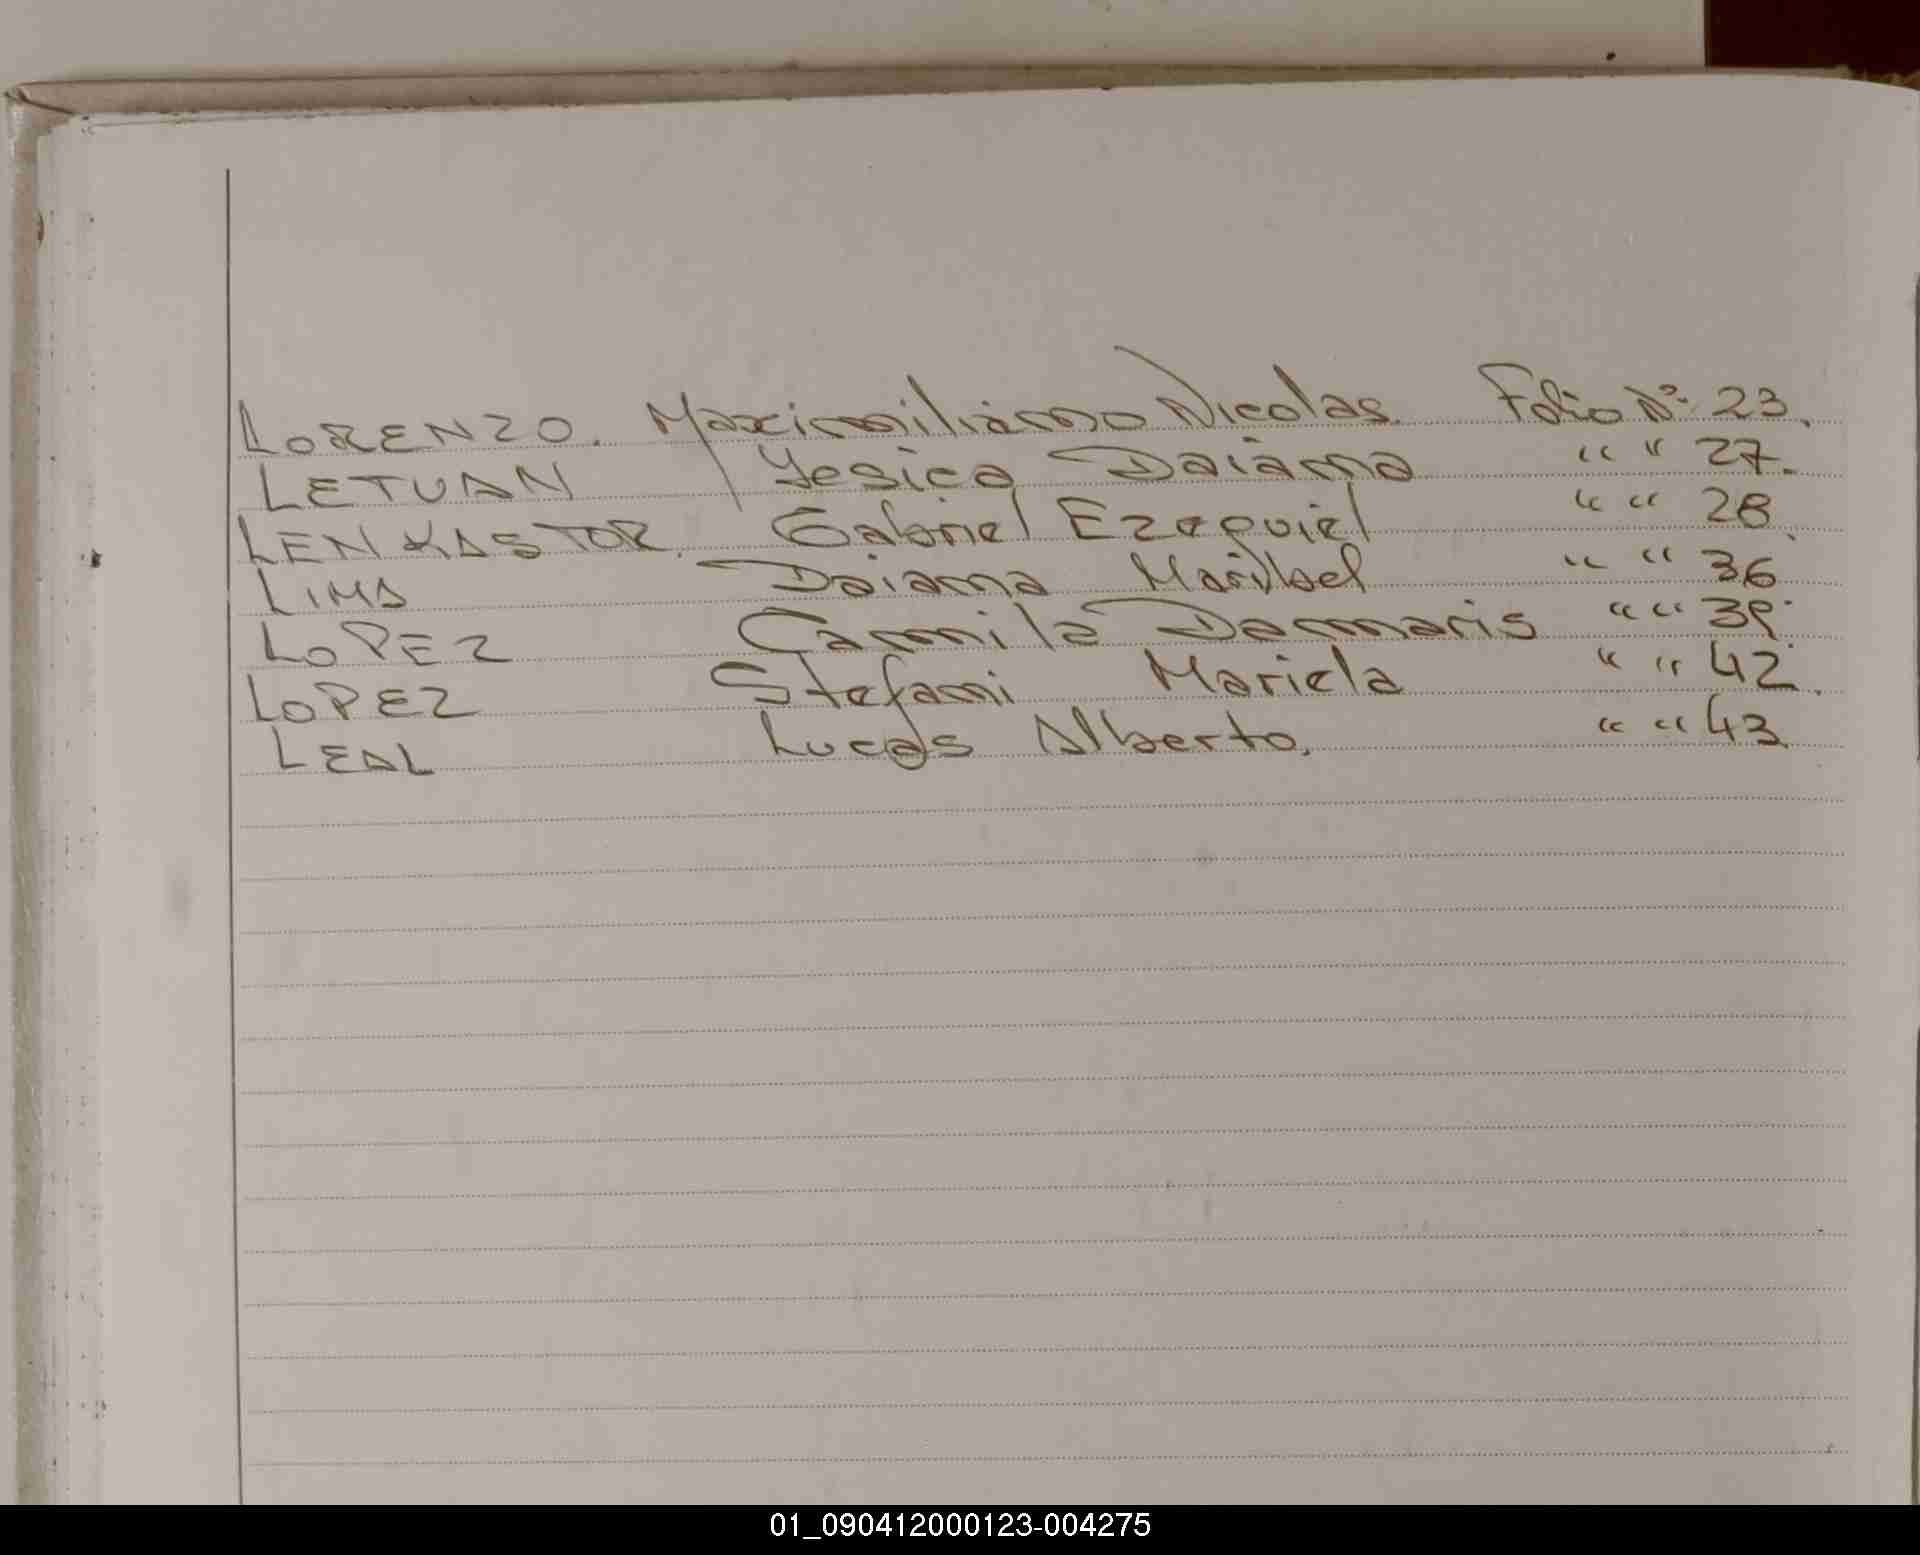 LORENZO. Maximiliano Nicolas. Folio Nº 23.
LETUAN Yesica Daiana " " 27.
LENKASTOR. Gabriel Ezequiel " " 28.
LIMA Daiana Maribel " " 36
LOPEZ Camila Damaris " " 39.
LOPEZ Stefani Mariela " " 42.
LEAL Lucas Alberto. " " 43
01_090412000123-004275